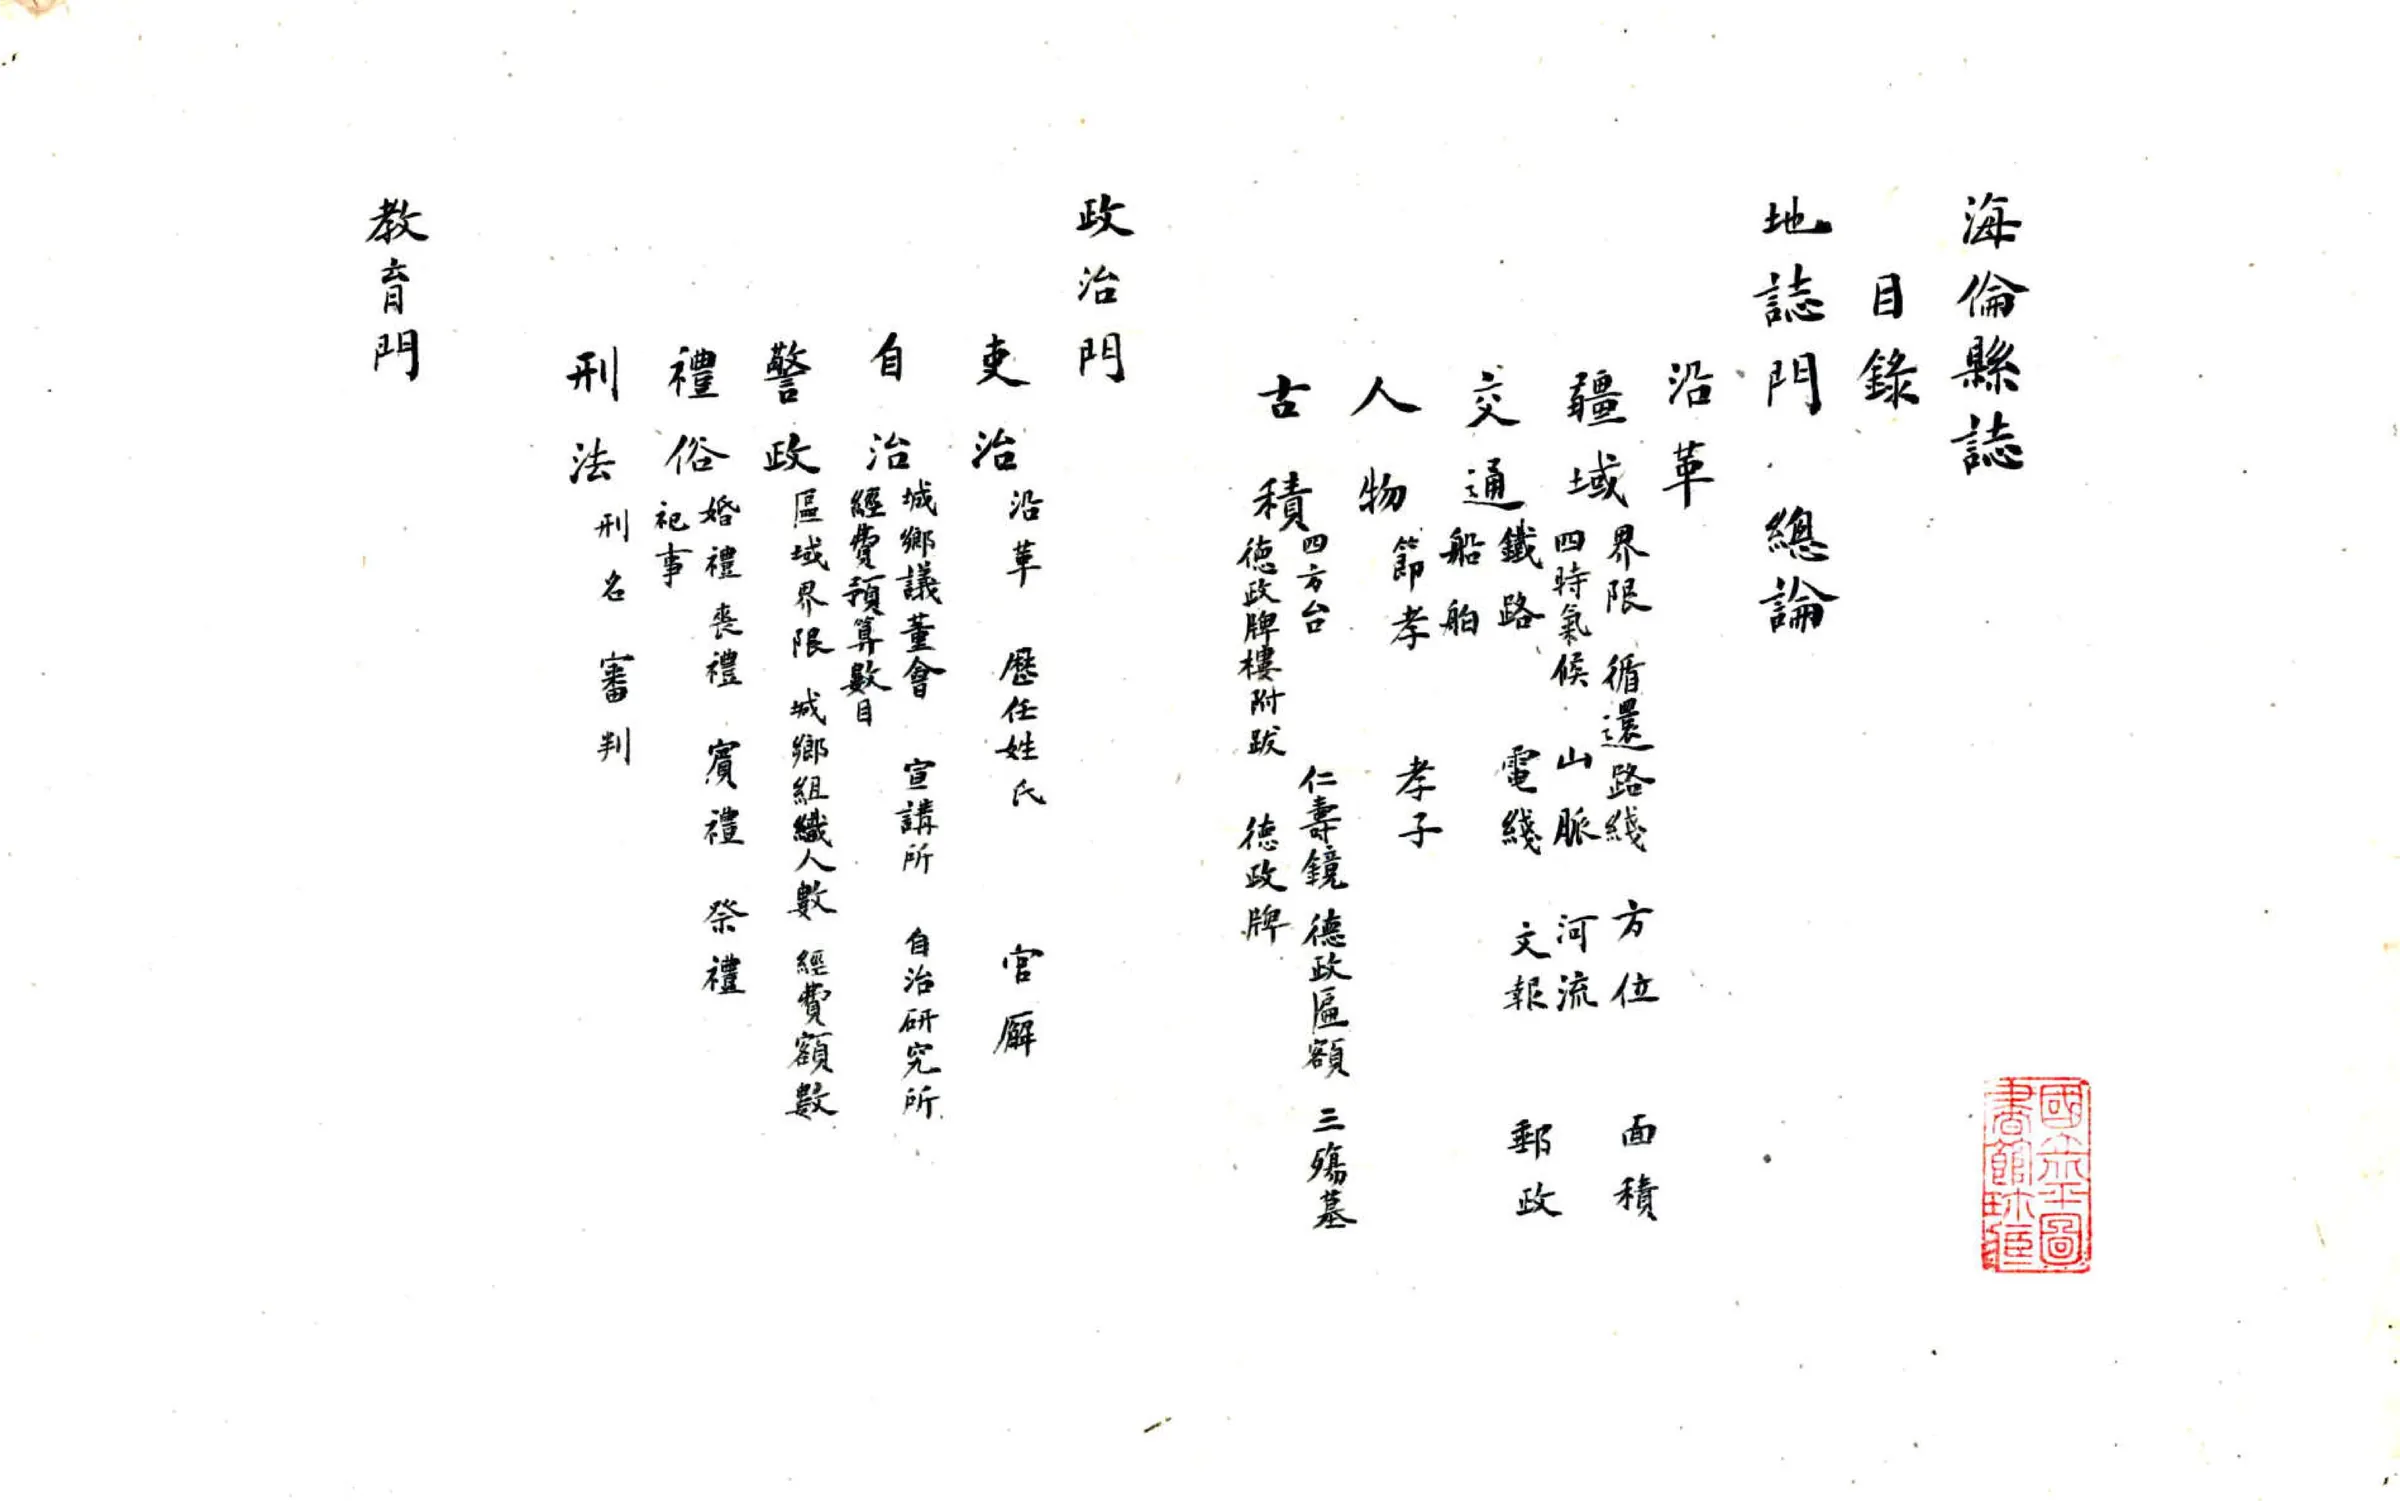 海倫縣誌
目錄
地誌門 總論
沿革
疆域 界限 循還路綫 方位 面積
四時氣候 山脈 河流
交通 鐵路 電綫 文報 郵政
船舶
人物 節孝 孝子
古積 四方台 仁壽鏡 德政匾額 三殤墓
德政牌樓附跋 德政牌
政治門
吏治 沿革 歷任姓氏 官廨
自治 城鄉議董會 宣講所 自治研究所
經費預算數目
警政 區域界限 城鄉組織人數 經費額數
禮俗 婚禮 喪禮 賓禮 祭禮
祀事
刑法 刑名 審判
教育門
國立北平圖
書館珎藏